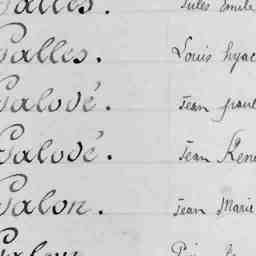 Galles. Jules Emile
Galles. Louis hyac
Galové. Jean paul
Galové. Jean René
Galon. Jean Marie
Galon